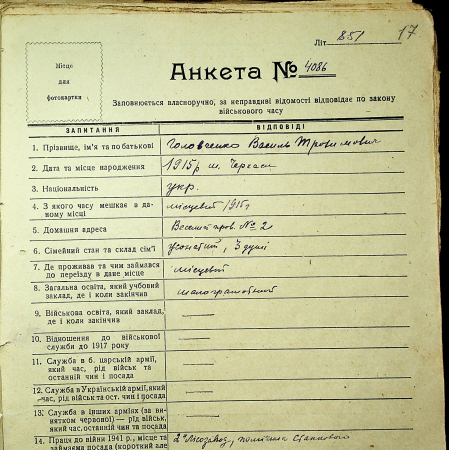 Літ 851 17
Місце
для
фотокартки
Анкета № 4086
Заповнюється власноручно, за неправдиві відомості відповідає по закону
військового часу
ЗАПИТАННЯ ВІДПОВІДІ
1. Прізвище, ім'я та по батькові Головченко Василь Трохимович
2. Дата та місце народження 1915р м. Черкаси
3. Національність укр.
4. З якого часу мешкає в даному місці місцевий 1915г
5. Домашня адреса пров. № 2
6. Сімейний стан та склад сім'ї жонатий, 3 душі
7. Де проживав та чим займався
до переїзду в дане місце місцевий
8. Загальна освіта, який учбовий
заклад, де і коли закінчив малограмотний
9. Військова освіта, який заклад,
де і коли закінчив —
10. Відношення до військової
служби до 1917 року —
11. Служба в б. царській армії,
який час, рід військ та
останній чин і посада —
12. Служба в Українській армії, який
час, рід військ та ост. чин і посада —
13. Служба в інших арміях (за ви-
нятком червоної) — рід військ,
який час, останній чин та посада —
14. Праця до війни 1941 р., місце та
займана посада (короткий але 2й Лісозавод,